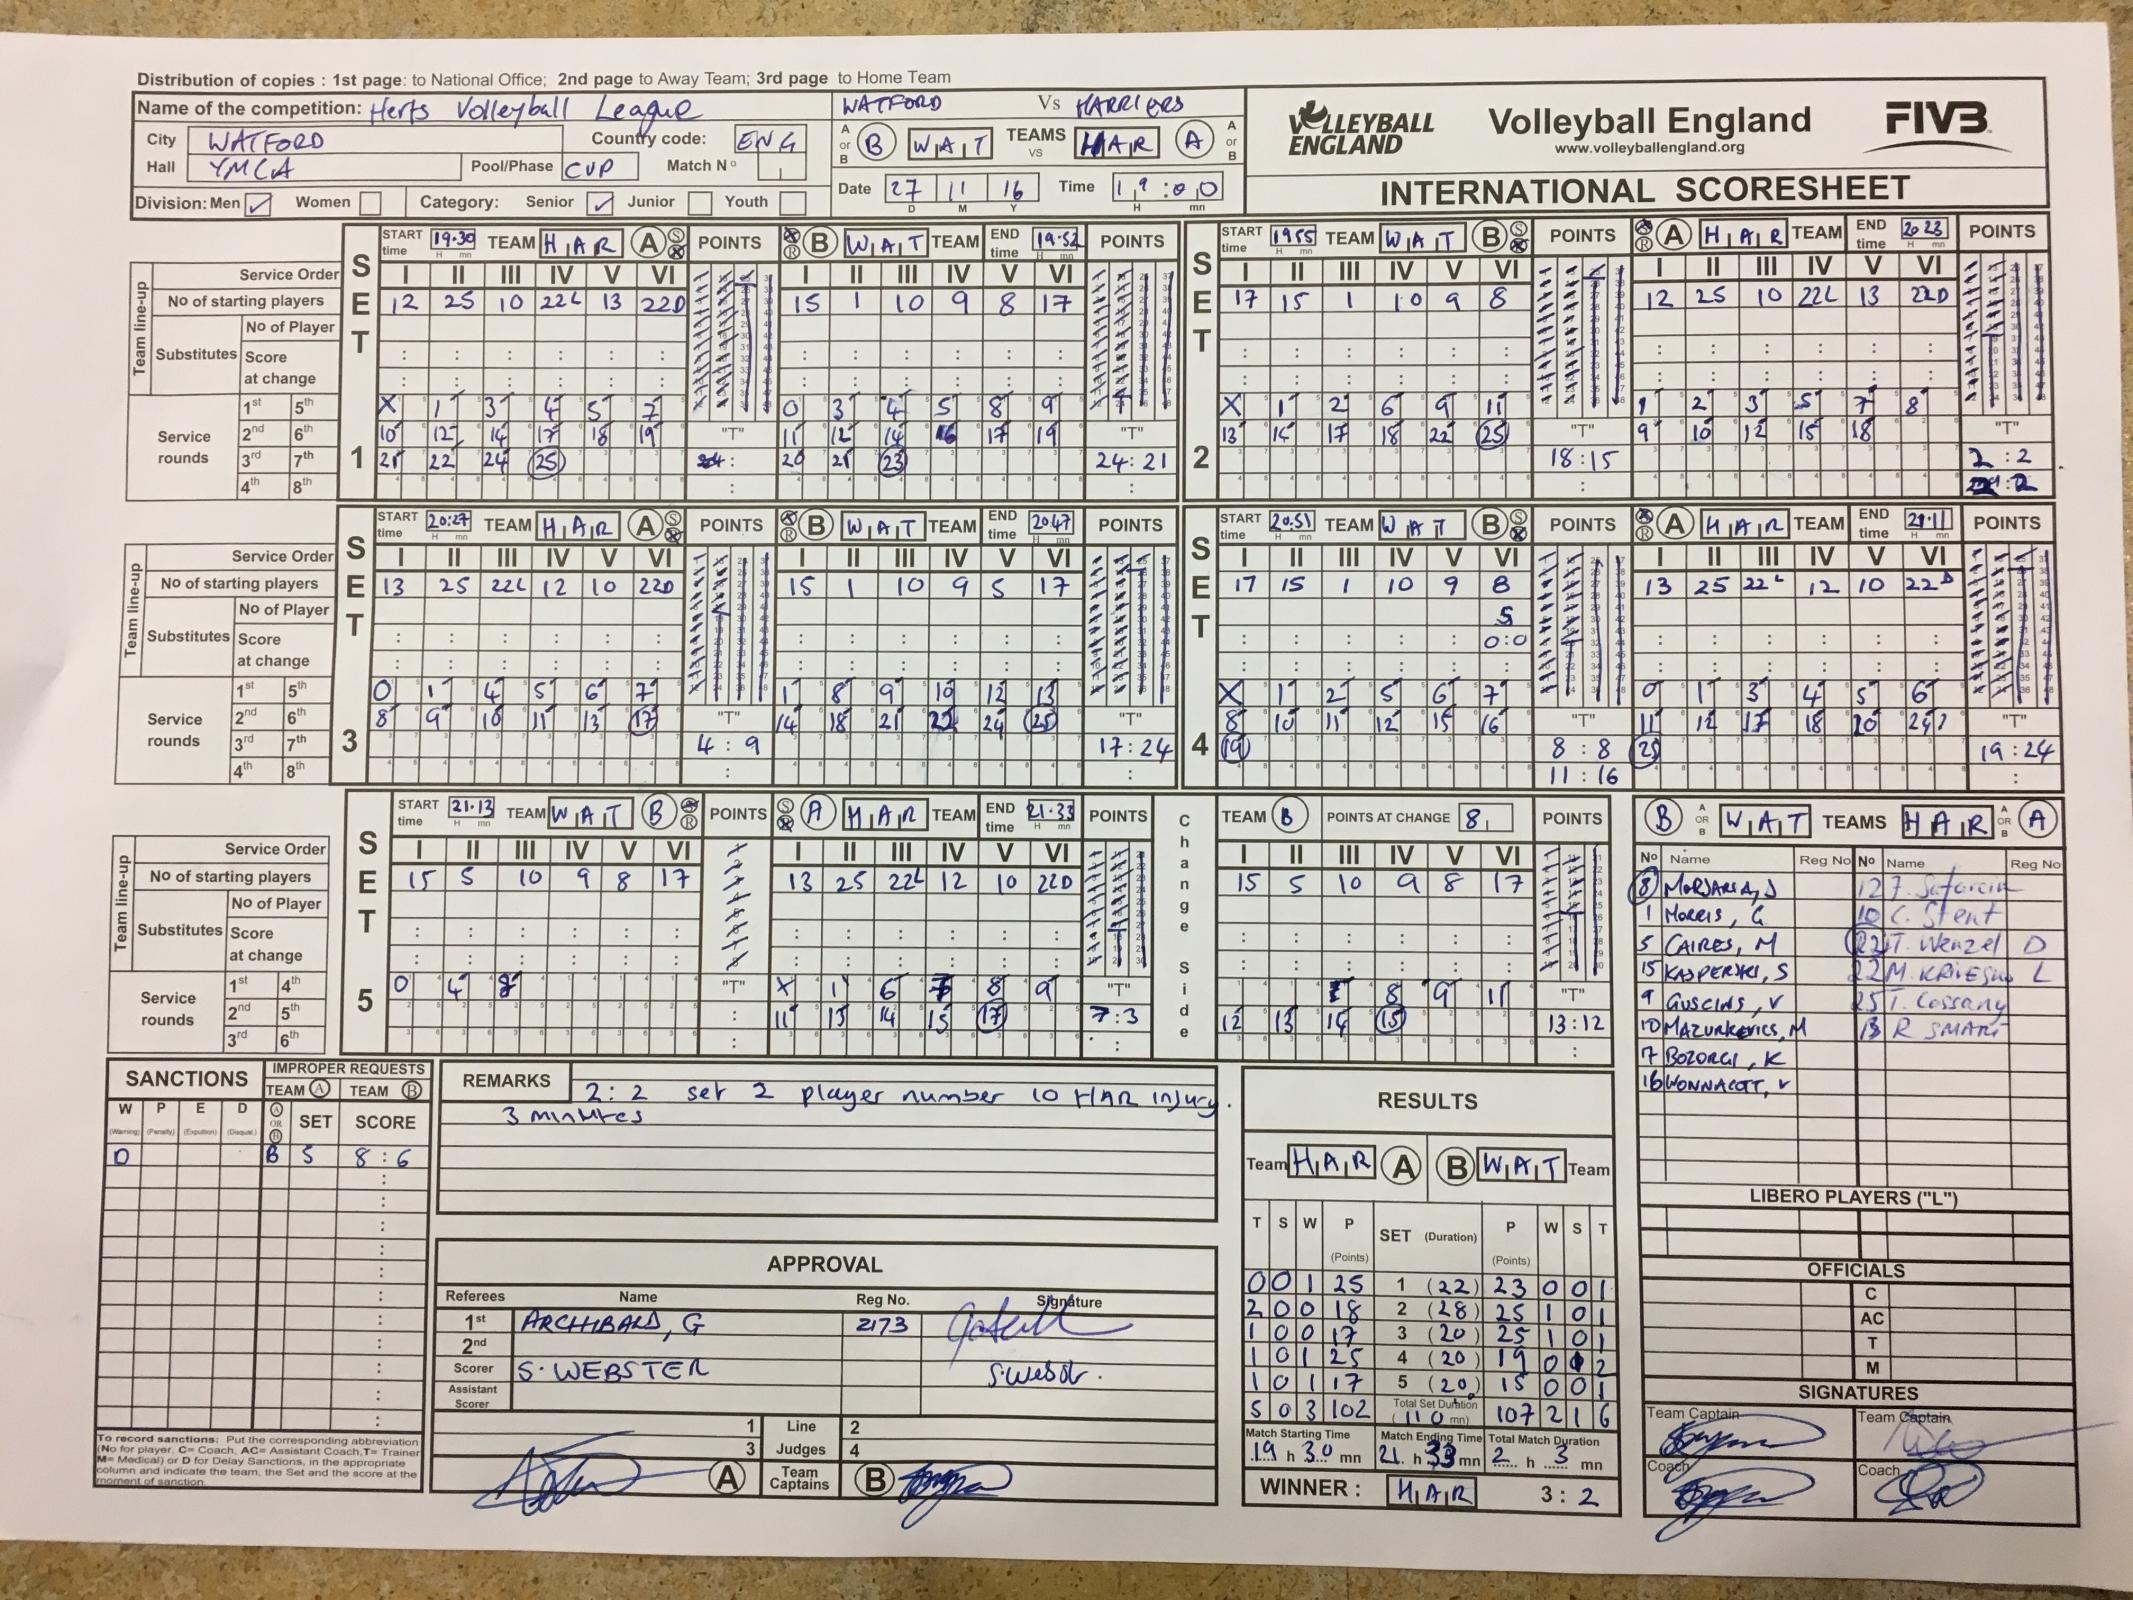 Distribution of copies : 1st page: to National Office; 2nd page to Away Team; 3rd page to Home Team
Name of the competition: Herts Volleyball League
City WATFORD Country code: ENG
Hall YMCA Pool/Phase CUP Match Nº
Division: Men ✓ Women Category: Senior ✓ Junior Youth
WATFORD Vs HARRIERS
A or B B WAT TEAMS VS HAR A A or B
Date 27 11 16 Time 19:00
D M Y H mn
VOLLEYBALL ENGLAND
Volleyball England
www.volleyballengland.org
FIVB
INTERNATIONAL SCORESHEET
SET 1
START time 19.30 TEAM HAR A S R POINTS S R B WAT TEAM END time 19.52 POINTS
Team line-up
Service Order I II III IV V VI I II III IV V VI
No of starting players 12 25 10 22L 13 22D 15 1 10 9 8 17
Substitutes No of Player
Score at change
Service rounds 1st 5th X 1 3 4 5 7 0 3 4 5 8 9
2nd 6th 10 12 14 17 18 19 "T" 11 12 14 16 17 19 "T"
3rd 7th 21 22 24 25 20 21 23 24:21
4th 8th
SET 2
START time 1955 TEAM WAT B S R POINTS S R A HAR TEAM END time 2023 POINTS
I II III IV V VI I II III IV V VI
17 15 1 10 9 8 12 25 10 22L 13 22D
X 1 2 6 9 11 1 2 3 5 7 8
13 14 17 18 22 25 "T" 9 10 12 15 18 "T"
18:15 2:2
SET 3
START time 20:27 TEAM HAR A S R POINTS S R B WAT TEAM END time 2047 POINTS
Team line-up
Service Order I II III IV V VI I II III IV V VI
No of starting players 13 25 22L 12 10 22D 15 1 10 9 5 17
Substitutes No of Player
Score at change
Service rounds 1st 5th 0 1 4 5 6 7 1 8 9 10 12 13
2nd 6th 8 9 10 11 13 17 "T" 14 18 21 22 24 25 "T"
3rd 7th 4:9 17:24
4th 8th
SET 4
START time 20.51 TEAM WAT B S R POINTS S R A HAR TEAM END time 21.11 POINTS
I II III IV V VI I II III IV V VI
17 15 1 10 9 8 13 25 22L 12 10 22D
5
0:0
X 1 2 5 6 7 0 1 3 4 5 6
8 10 11 12 15 16 "T" 11 12 17 18 20 "T"
19 8:8 25 19:24
11:16
SET 5
START time 21.13 TEAM WAT B S R POINTS S R A HAR TEAM END time 21.33 POINTS
Team line-up
Service Order I II III IV V VI I II III IV V VI
No of starting players 15 5 10 9 8 17 13 25 22L 12 10 22D
Substitutes No of Player
Score at change
Service rounds 1st 4th 0 4 "T" X 1 6 7 8 9 "T"
2nd 5th 11 13 14 15 17 7:3
3rd 6th
Change Side
TEAM B POINTS AT CHANGE 8 POINTS
I II III IV V VI
15 5 10 9 8 17
8 9 11 "T"
12 13 14 15 13:12
B A OR B WAT TEAMS HAR A OR B A
No Name Reg No No Name Reg No
8 MORJARIA, J 12
1 MORRIS, G 10 C. Stent
5 CAIRES, M 22 T. Wenzel D
15 KASPERSKI, S 22 L
9 GUSCINS, V 25
10 MAZURKEVICS, M 13 R SMART
17 BOZORGI, K
16 WONNACOTT, V
LIBERO PLAYERS ("L")
OFFICIALS
C
AC
T
M
SIGNATURES
Team Captain Team Captain
Coach Coach
SANCTIONS
IMPROPER REQUESTS
TEAM A TEAM B
W P E D A OR B SET SCORE
(Warning) (Penalty) (Expulsion) (Disqual.)
D B 5 8:6
To record sanctions: Put the corresponding abbreviation
(No for player, C= Coach, AC= Assistant Coach, T= Trainer
M= Medical) or D for Delay Sanctions, in the appropriate
column and indicate the team, the Set and the score at the
moment of sanction.
REMARKS
2:2 set 2 player number 10 HAR injury.
3 minutes
APPROVAL
Referees Name Reg No. Signature
1st ARCHIBALD, G 2173
2nd
Scorer S. WEBSTER
Assistant Scorer
1 Line 2
3 Judges 4
A Team Captains B
RESULTS
Team HAR A B WAT Team
T S W P (Points) SET (Duration) P (Points) W S T
0 0 1 25 1 (22) 23 0 0 1
2 0 0 18 2 (28) 25 1 0 1
1 0 0 17 3 (20) 25 1 0 1
1 0 1 25 4 (20) 19 0 1 2
1 0 1 17 5 (20) 15 0 0 1
5 0 3 102 Total Set Duration (110 mn) 107 2 1 6
Match Starting Time Match Ending Time Total Match Duration
19 h 30 mn 21 h 33 mn 2 h 3 mn
WINNER : HAR 3 : 2